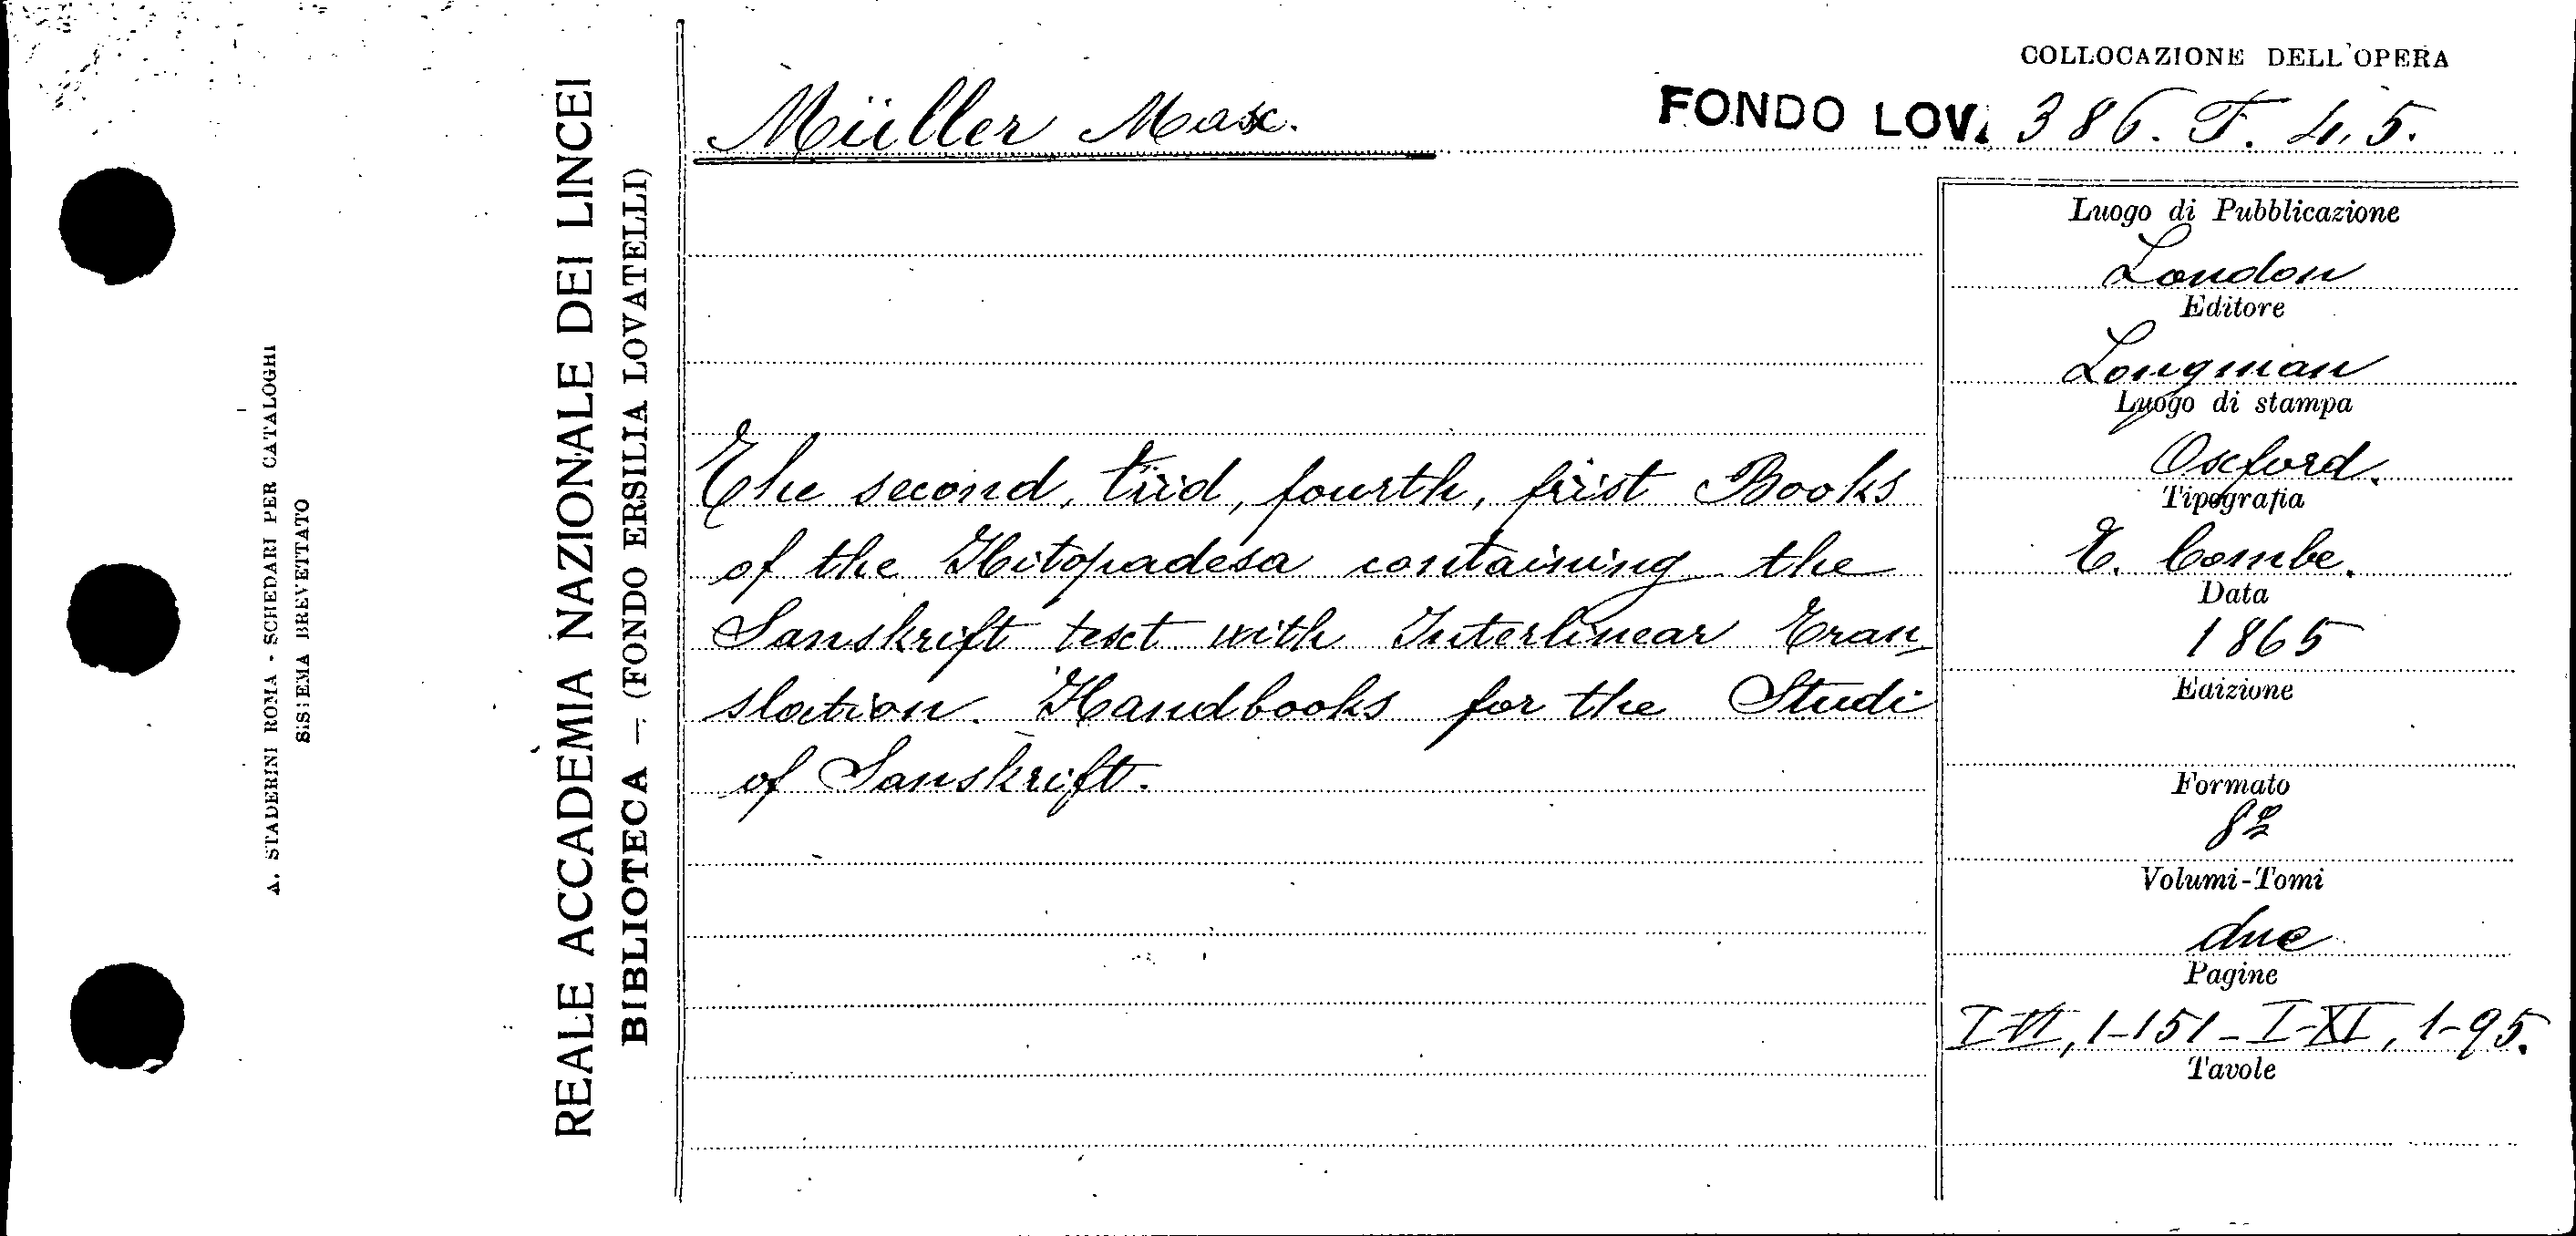 COLLOCAZIONE DELL'OPERA
Müller Max.
FONDO LOV. 386. F. 4, 5.
REALE ACCADEMIA NAZIONALE DEI LINCEI
BIBLIOTECA — (FONDO ERSILIA LOVATELLI)
A. STADERINI ROMA - SCHEDARI PER CATALOGHI
SISTEMA BREVETTATO
The second, tird, fourth, first Books
of the Hitopadesa containing the
Sanskrift text with Interlinear Tran
slation. Handbooks for the Studi
of Sanskrift.
Luogo di Pubblicazione
London
Editore
Longman
Luogo di stampa
Oxford.
Tipografia
E. Combe.
Data
1865
Edizione
Formato
8º
Volumi-Tomi
due
Pagine
I-VI, 1-151 - I-XI, 1-95.
Tavole